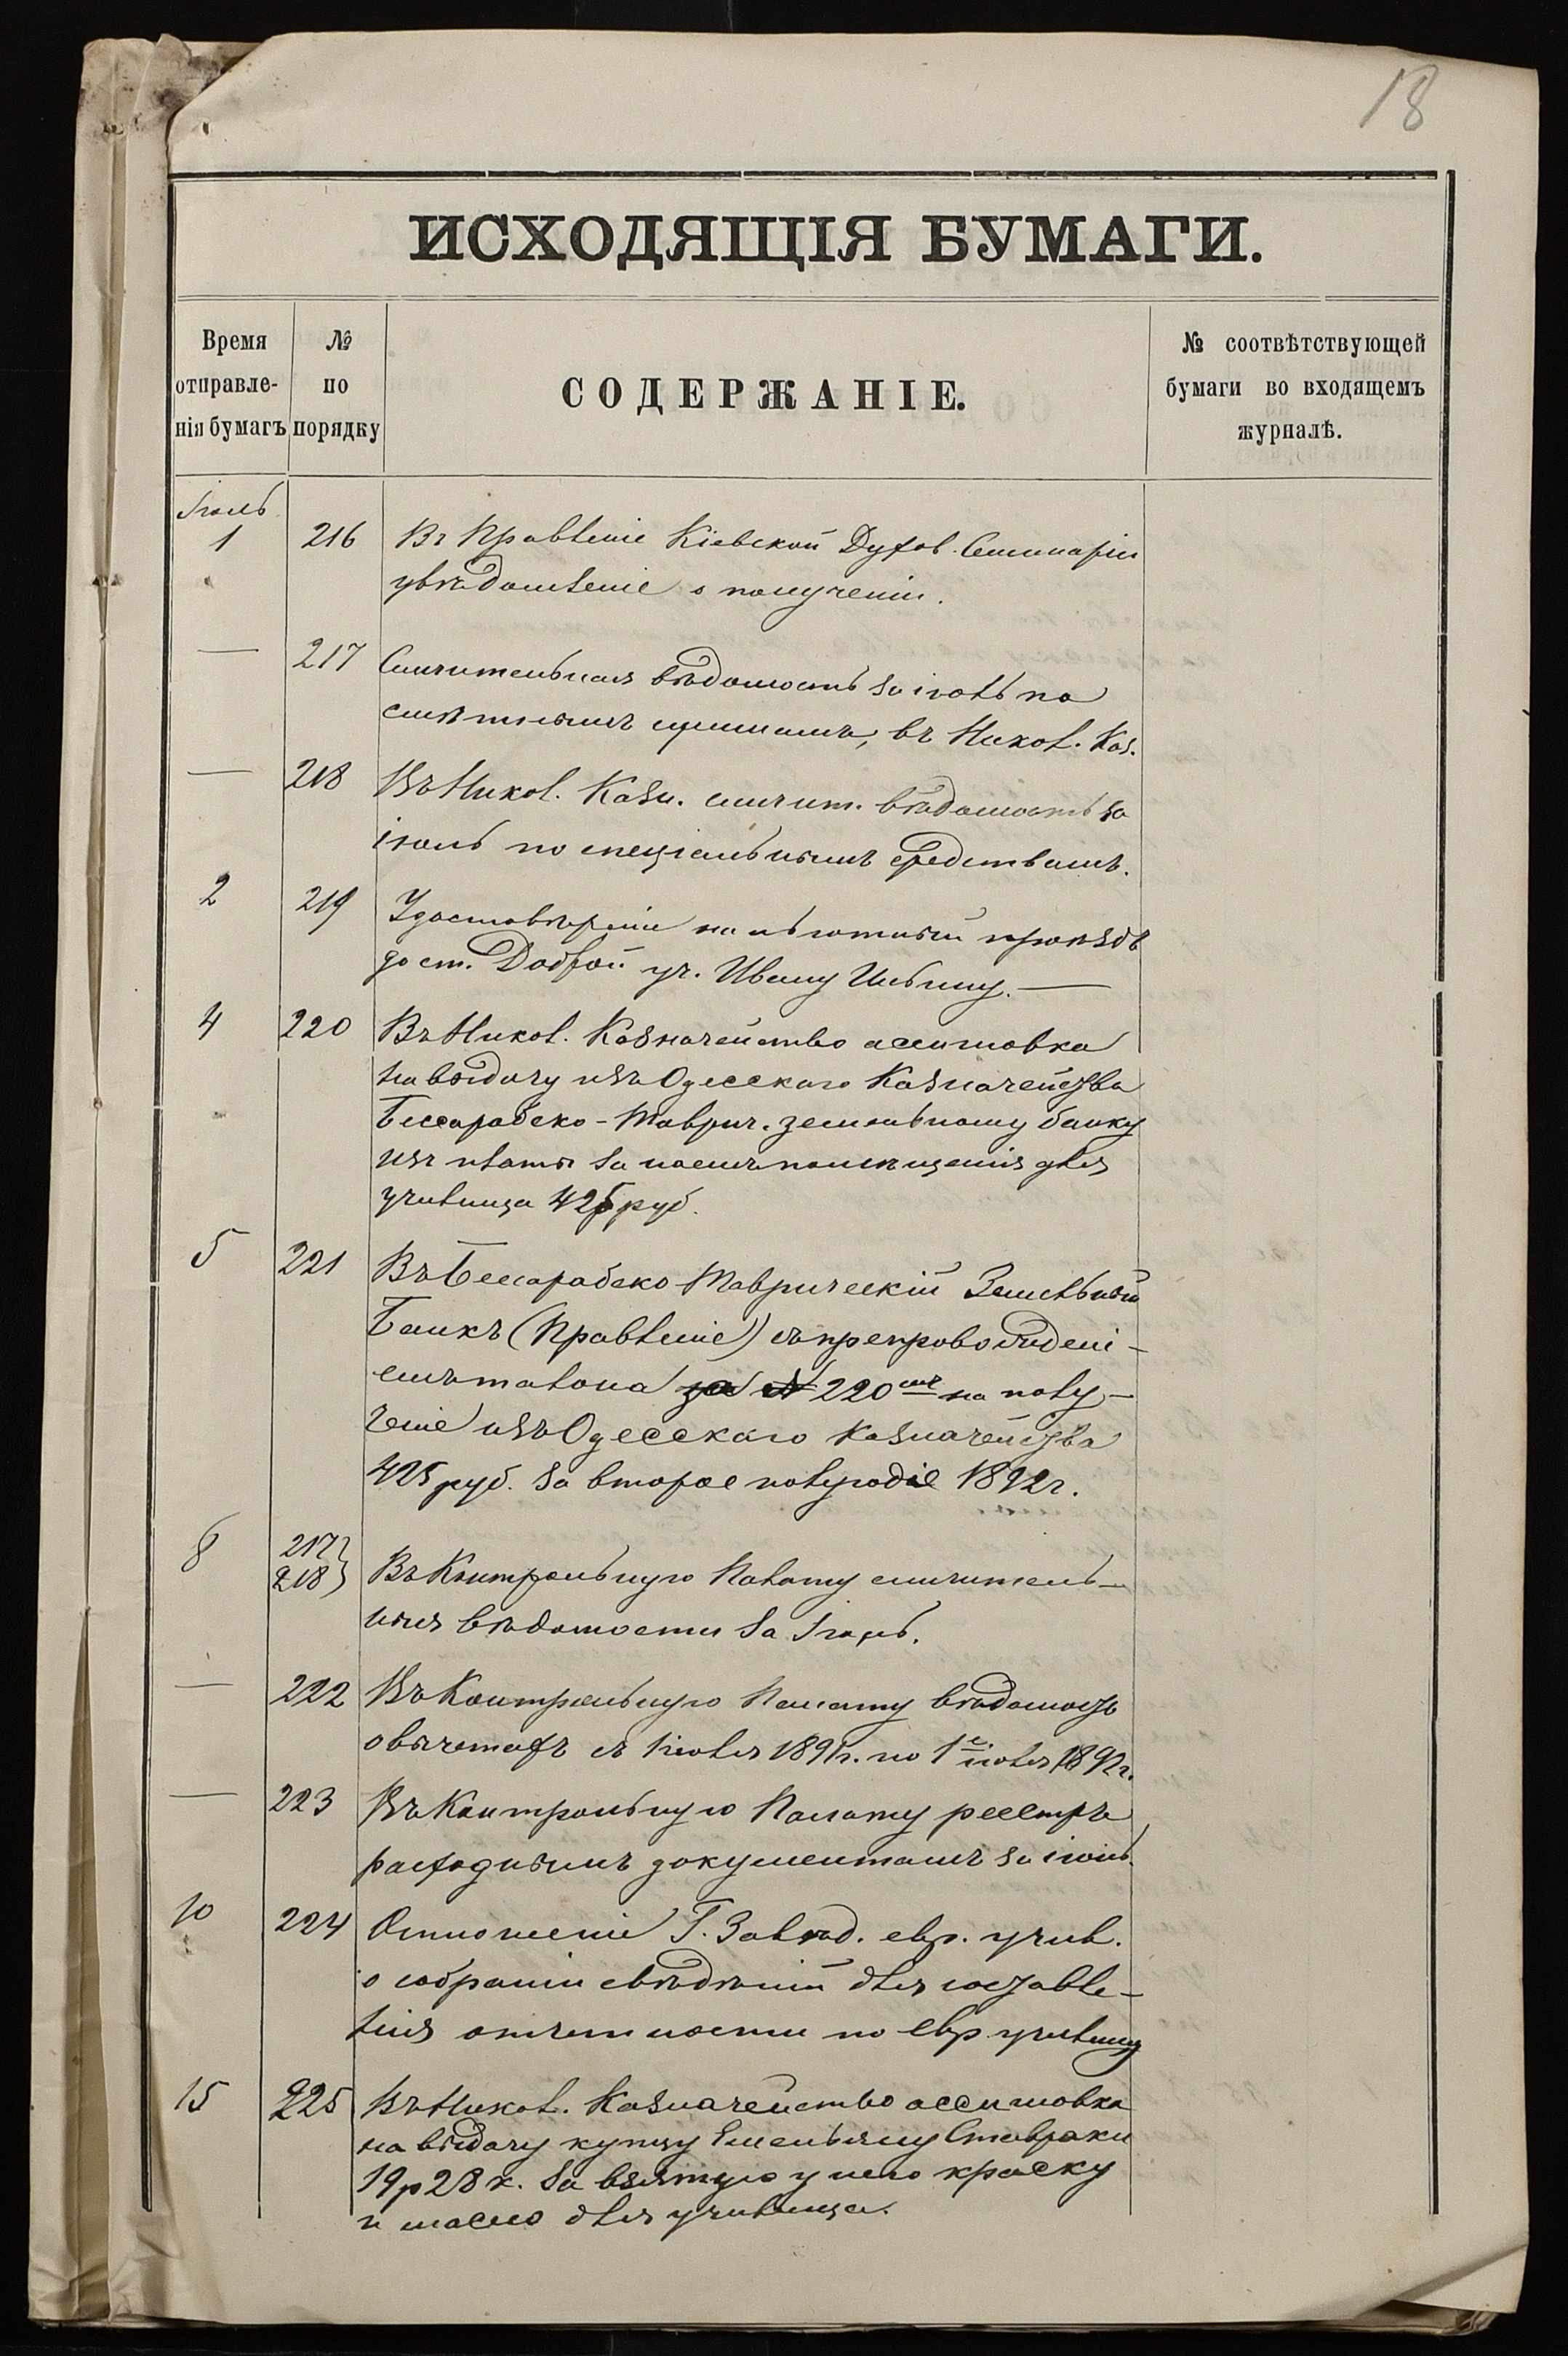 18
ИСХОДЯЩІЯ БУМАГИ.
Время отправле-нія бумагъ
№ по порядку
СОДЕРЖАНІЕ.
№ соотвѣтствующей бумаги во входящемъ журналѣ.
Іюль
1 216 Въ Правленіе Кіевской Духов. Семинаріи
увѣдомленіе о полученіи.
— 217 Сличительная вѣдомость за іюль по
смѣтнымъ суммамъ, въ Никол. Каз.
— 218 Въ Никол. Казн. сличит. вѣдомость за
іюль по спеціальнымъ средствамъ.
2 219 Удостовѣреніе на льготный проѣздъ
до ст. Доброй уч. Ивану Ильину. —
4 220 Въ Никол. Казначейство ассигновка
на выдачу изъ Одесскаго Казначейства
Бессарабско-Таврич. земельному банку
изъ платы за наемъ помѣщенія для
училища 425 руб.
5 221 Въ Бессарабско-Таврическій Земельный
Банкъ (Правленіе) съ препровожденi-
емъ талона за № 220 на полу-
ченіе изъ Одесскаго Казначейства
425 руб. за второе полугодіе 1892 г.
8 217}
218} Въ Контрольную Палату сличитель-
ныя вѣдомости за Іюнь.
— 222 Въ Контрольную Палату вѣдомость
о вычетахъ съ 1 іюля 1891 г. по 1е іюля 1892 г.
— 223 Въ Контрольную Палату реестръ
расходнымъ документамъ за іюнь.
10 224 Отношеніе Г. Завѣд. евр. учил.
о собраніи свѣдѣній для составле-
нія отчетности по евр. училищу
15 225 Въ Никол. Казначейство ассигновка
на выдачу купцу Емельяну Ставраки
19 р 28 к. за взятую у него краску
и масло для училища.